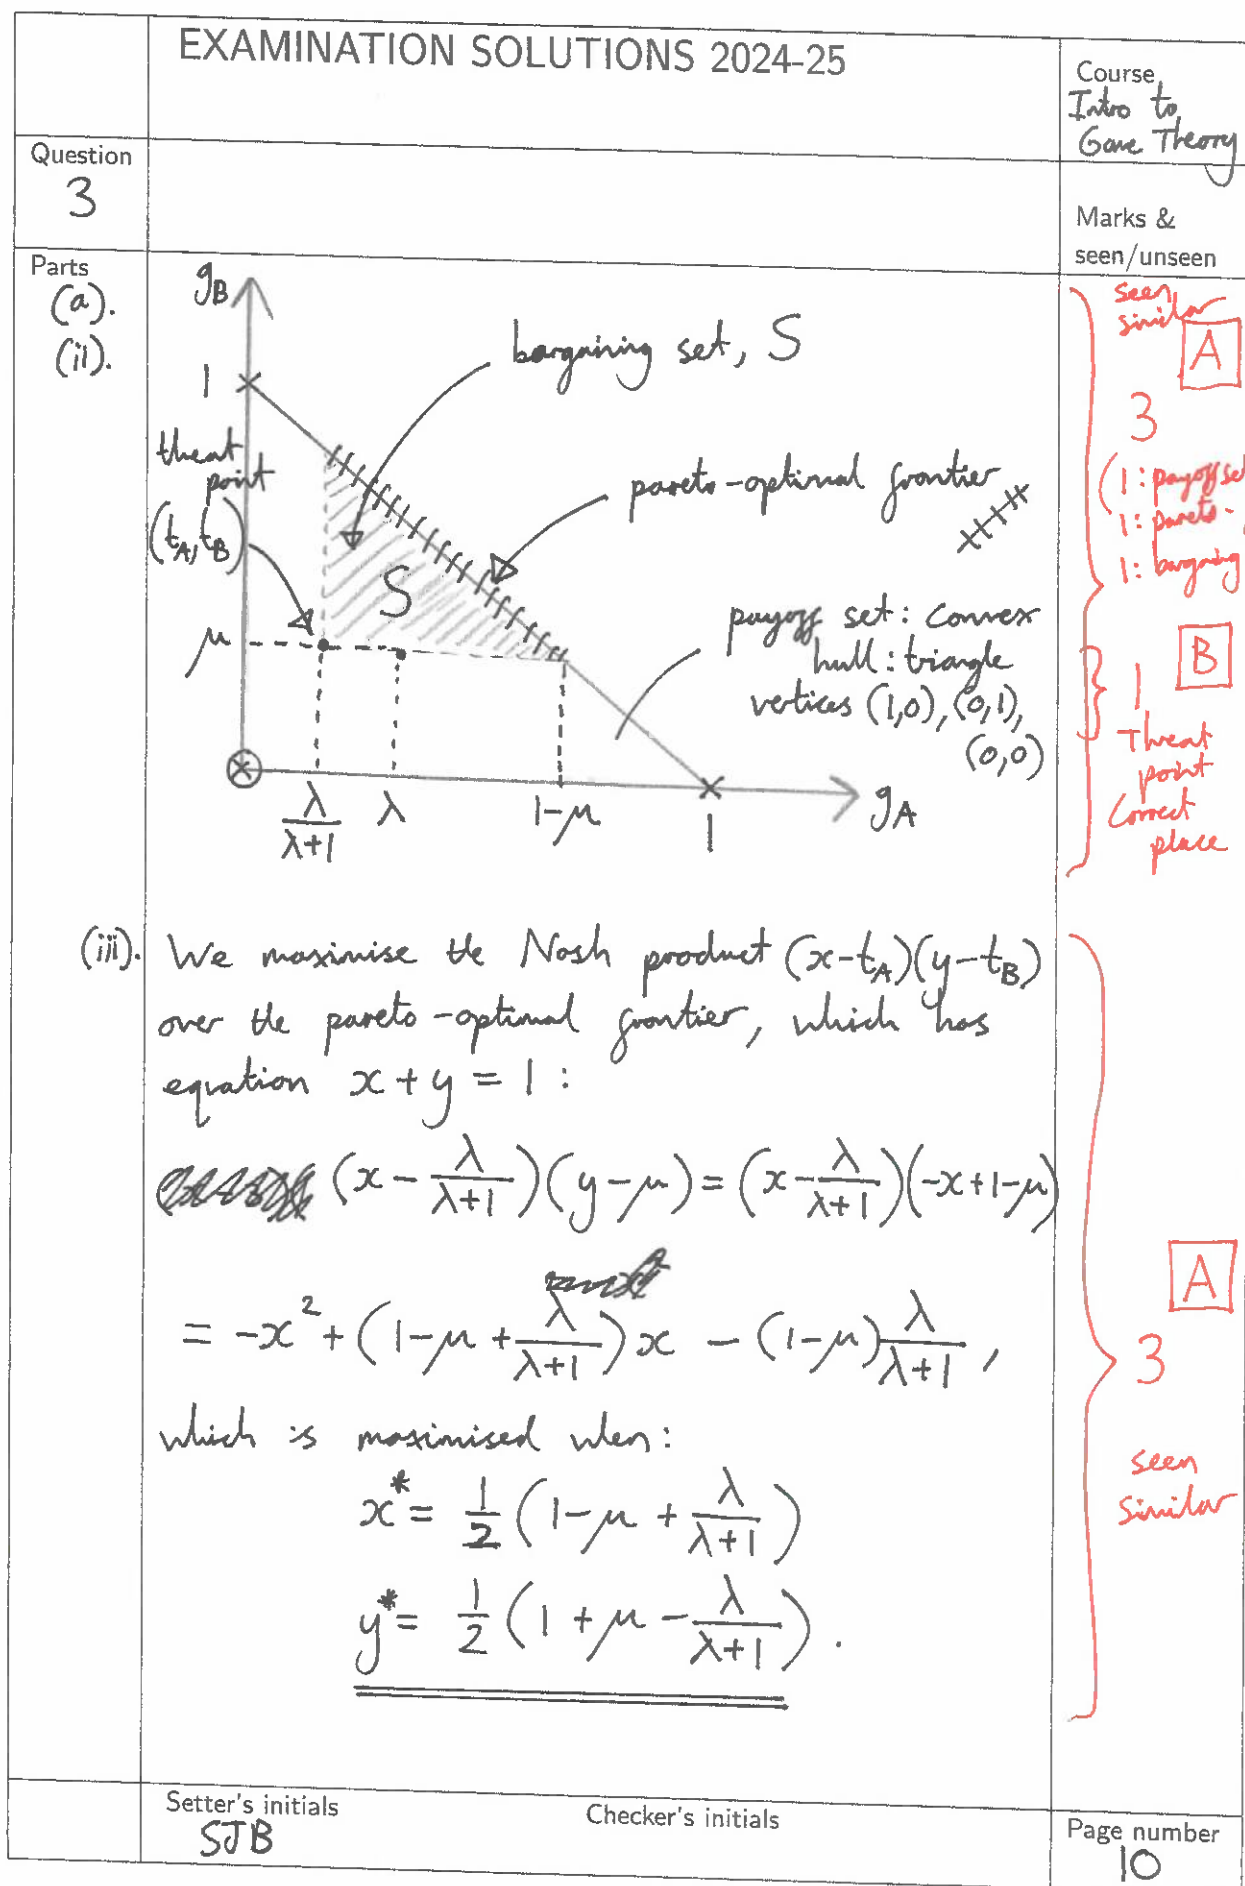 EXAMINATION SOLUTIONS 2024-25
Course
Intro to
Game Theory
Question
3
Marks &
seen/unseen
Parts
(a).
(ii).
g_B
1
bargaining set, S
threat
point
(t_A, t_B)
pareto-optimal frontier
S
μ
payoff set: convex
hull: triangle
vertices (1,0), (0,1),
(0,0)
λ/(λ+1)
λ
1-μ
1
g_A
seen
similar
A
3
(1: payoff set
1: pareto-
1: bargaining
B
1
Threat
point
Correct
place
(iii). We maximise the Nash product (x-t_A)(y-t_B)
over the pareto-optimal frontier, which has
equation x + y = 1 :
(x - λ/(λ+1))(y-μ) = (x - λ/(λ+1))(-x+1-μ)
= -x² + (1-μ + λ/(λ+1))x - (1-μ)λ/(λ+1) ,
which is maximised when:
x* = 1/2 (1-μ + λ/(λ+1))
y* = 1/2 (1+μ - λ/(λ+1)) .
A
3
seen
similar
Setter's initials
SJB
Checker's initials
Page number
10